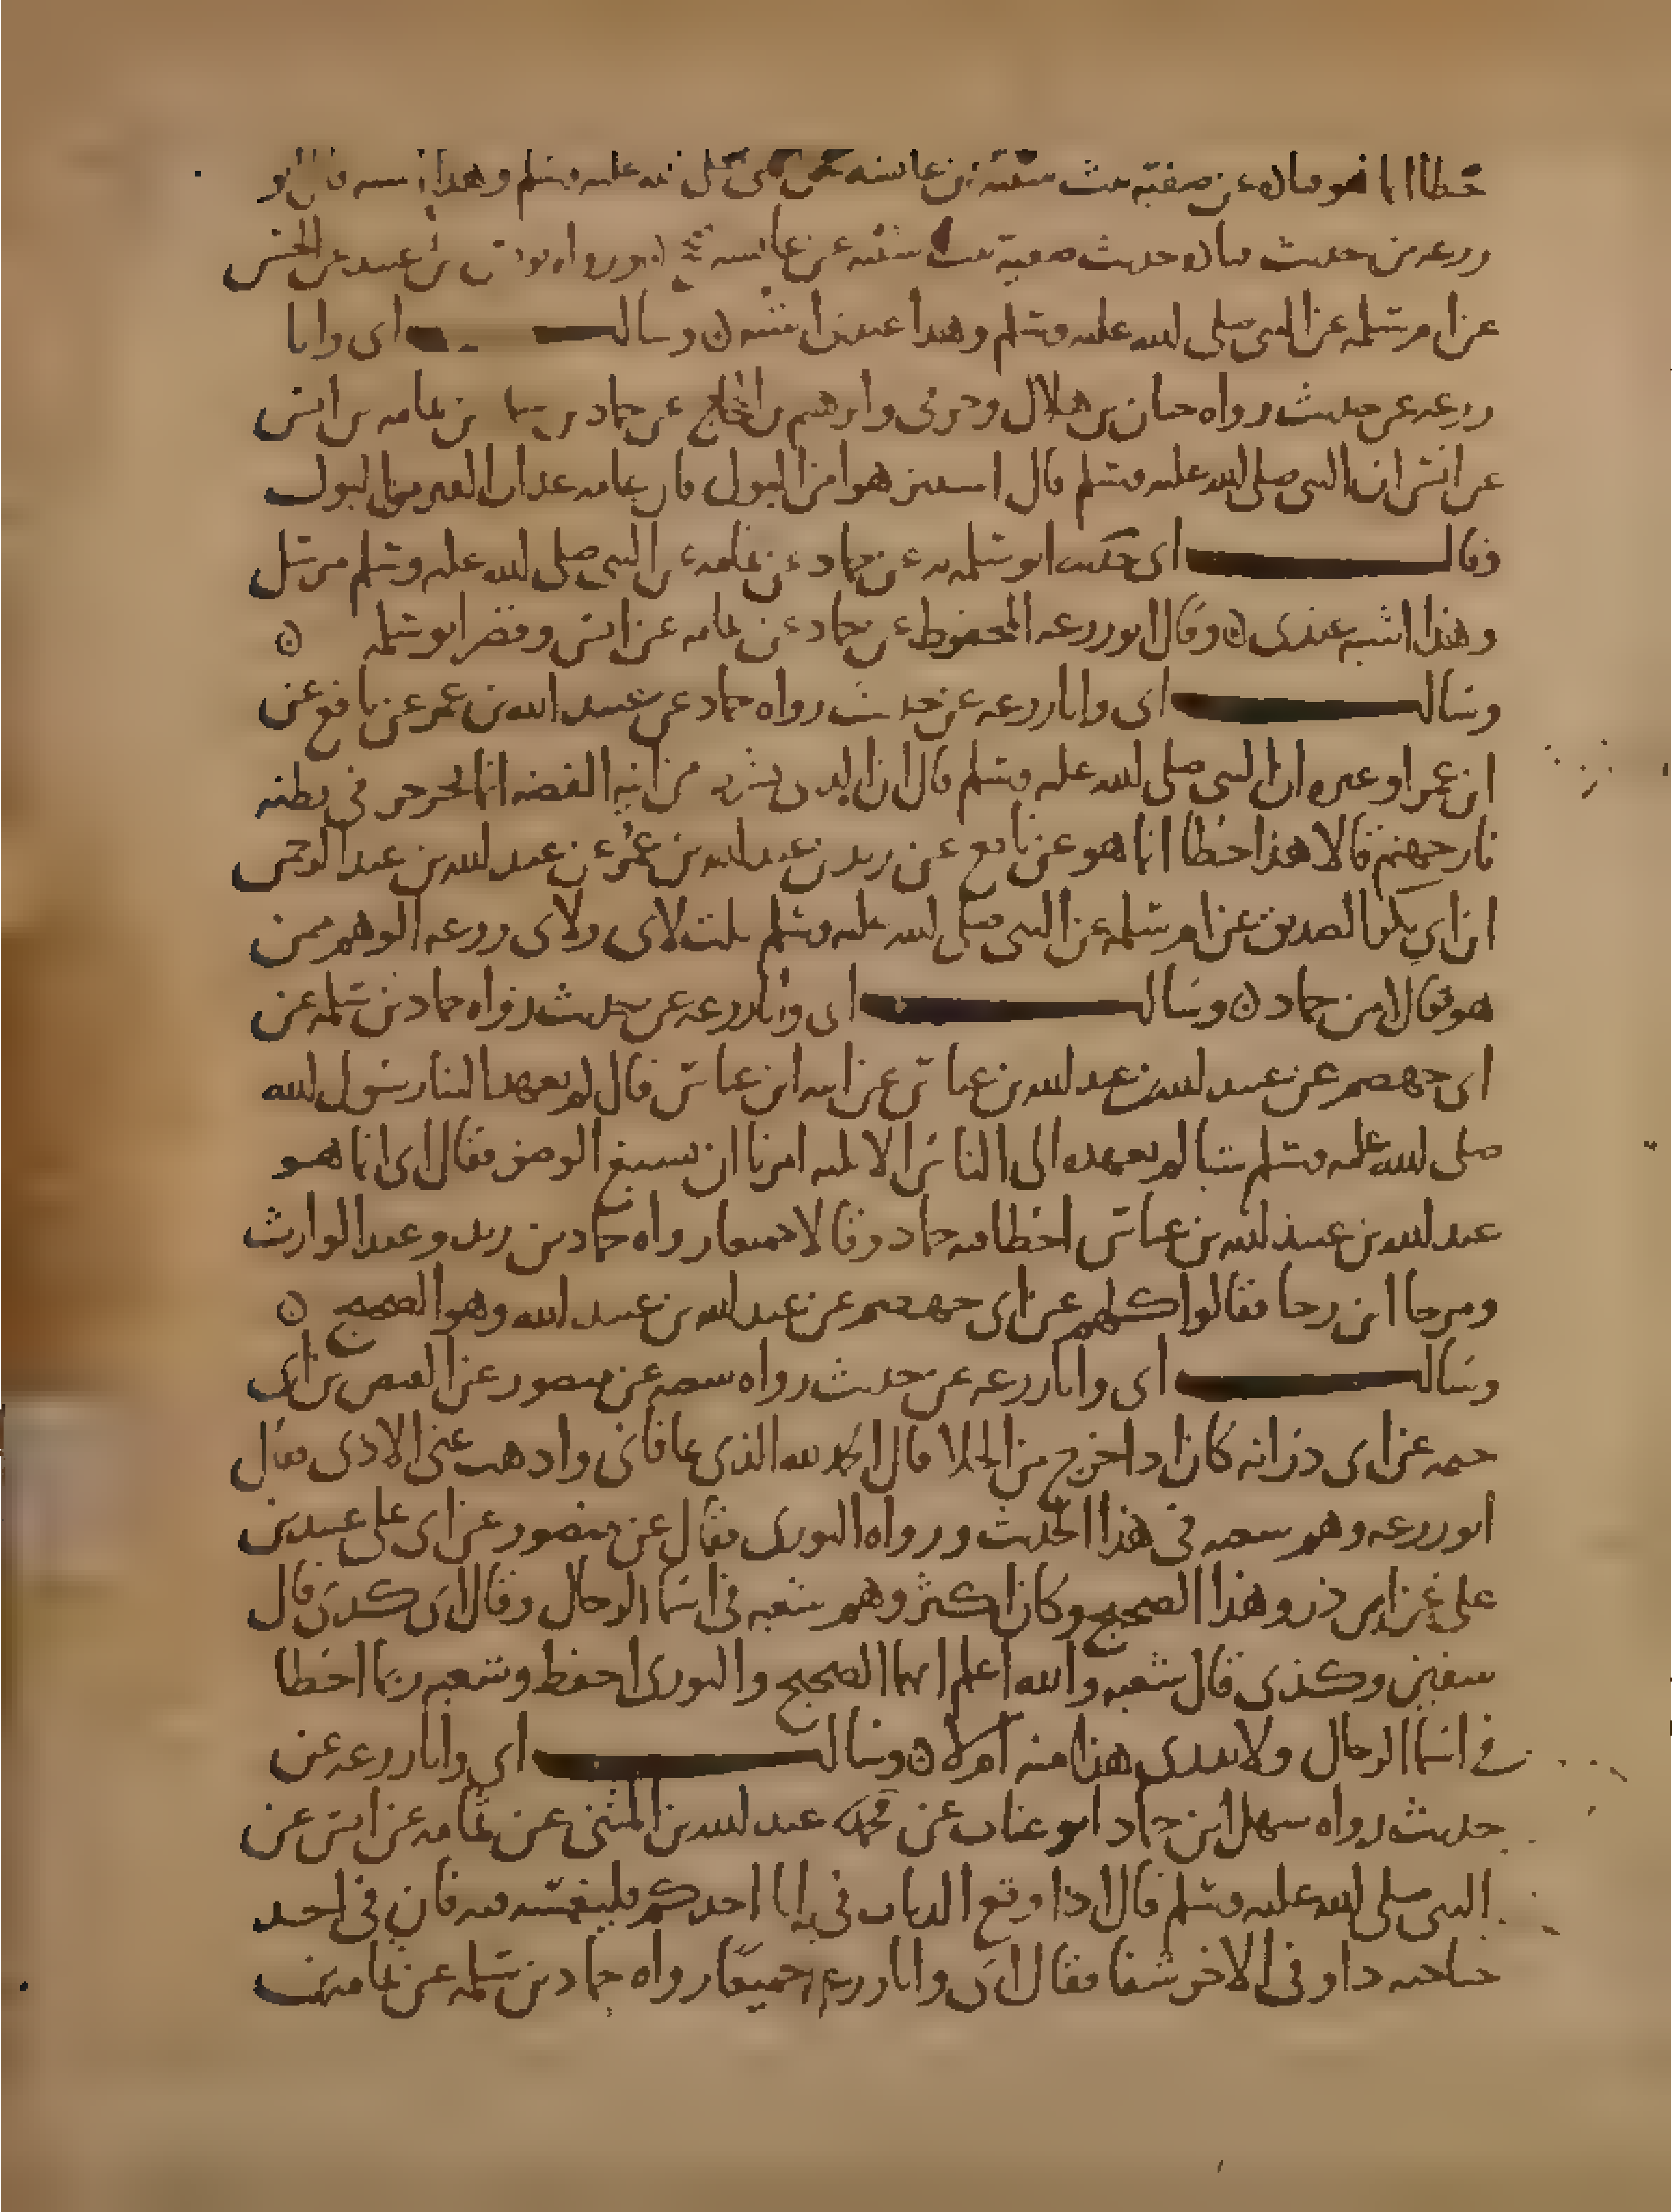 خطا انما هو قتاده عن صفيه بنت شيبه عن عايشه عن النبى صلى الله عليه وسلم وهذا اشبه قال ابو
زرعه من حديث قتاده حديث صفية بنت شيبه عن عايشه صحيح ورواه يونس بن عبيد عن الحسن
عن ام سلمه عن النبى صلى الله عليه وسلم وهذا عندى اشبه ن وسالت ابى وابا
زرعه عن حديث رواه حبان بن هلال وحرمى وابرهيم بن الحجاج عن حماد بن سلمه عن ثمامه بن انس
عن انس ان النبى صلى الله عليه وسلم قال استنزهوا من البول فان عامه عذاب القبر من البول
وقال ابى حدثنا ابو سلمه عن حماد عن ثمامه عن النبى صلى الله عليه وسلم مرسل
وهذا اشبه عندى ن وقال ابو زرعه المحفوظ عن حماد عن ثمامه عن انس وقصر ابو سلمه ن
وسالت ابى وابا زرعه عن حديث رواه حماد عن عبيد الله بن عمر عن نافع عن
ابن عمر او غيره ان النبى صلى الله عليه وسلم قال ان الذى يشرب من انيه الفضه انما يجرجر فى بطنه
نار جهنم فقالا هذا خطا انما هو عن نافع عن زيد بن عبد الله بن عمر عن عبد الله بن عبد الرحمن
ابن ابى بكر الصديق عن ام سلمه عن النبى صلى الله عليه وسلم قلت لابى ولابى زرعه الوهم ممن
هو فقال من حماد ن وسالت ابى وابا زرعه عن حديث رواه حماد بن سلمه عن
ابى جهضم عن عبيد الله بن عبد الله بن عباس عن ابيه ابن عباس قال لم يعهد الينا رسول الله
صلى الله عليه وسلم شيا لم يعهده الى الناس الا ثلثه امرنا ان نسبغ الوضو فقال ابى انما هو
عبد الله بن عبيد الله بن عباس اخطا فيه حماد وقالا جميعا رواه حماد بن زيد وعبد الوارث
ومرجا ابن رجا فقالوا كلهم عن ابى جهضم عن عبد الله بن عبيد الله وهو الصحيح ن
وسالت ابى وابا زرعه عن حديث رواه شعبه عن منصور عن الفيض بن ابى
حثمه عن ابى ذر انه كان اذا خرج من الخلا قال الحمد لله الذى عافانى واذهب عنى الاذى فقال
ابو زرعه وهم شعبه فى هذا الحديث ورواه الثورى فقال عن منصور عن ابى على عبيد بن
على عن ابى ذر وهذا الصحيح وكان اكثر وهم شعبه فى اسما الرجال وقال ابى كذى قال
سفين وكذى قال شعبه والله اعلم ايهما الصحيح والثورى احفظ وشعبه ربما اخطا
فى اسما الرجال ولا يدرى هذا منه ام لا ن وسالت ابى وابا زرعه عن
حديث رواه سهل ابن حماد ابو عتاب عن عبد الله بن المثنى عن ثمامه عن انس عن
النبى صلى الله عليه وسلم قال اذا وقع الذباب فى انا احدكم فليغمسه فيه فان فى احد
جناحيه دا وفى الاخر شفا فقال ابى وابا زرعه جميعا رواه حماد بن سلمه عن ثمامه بن